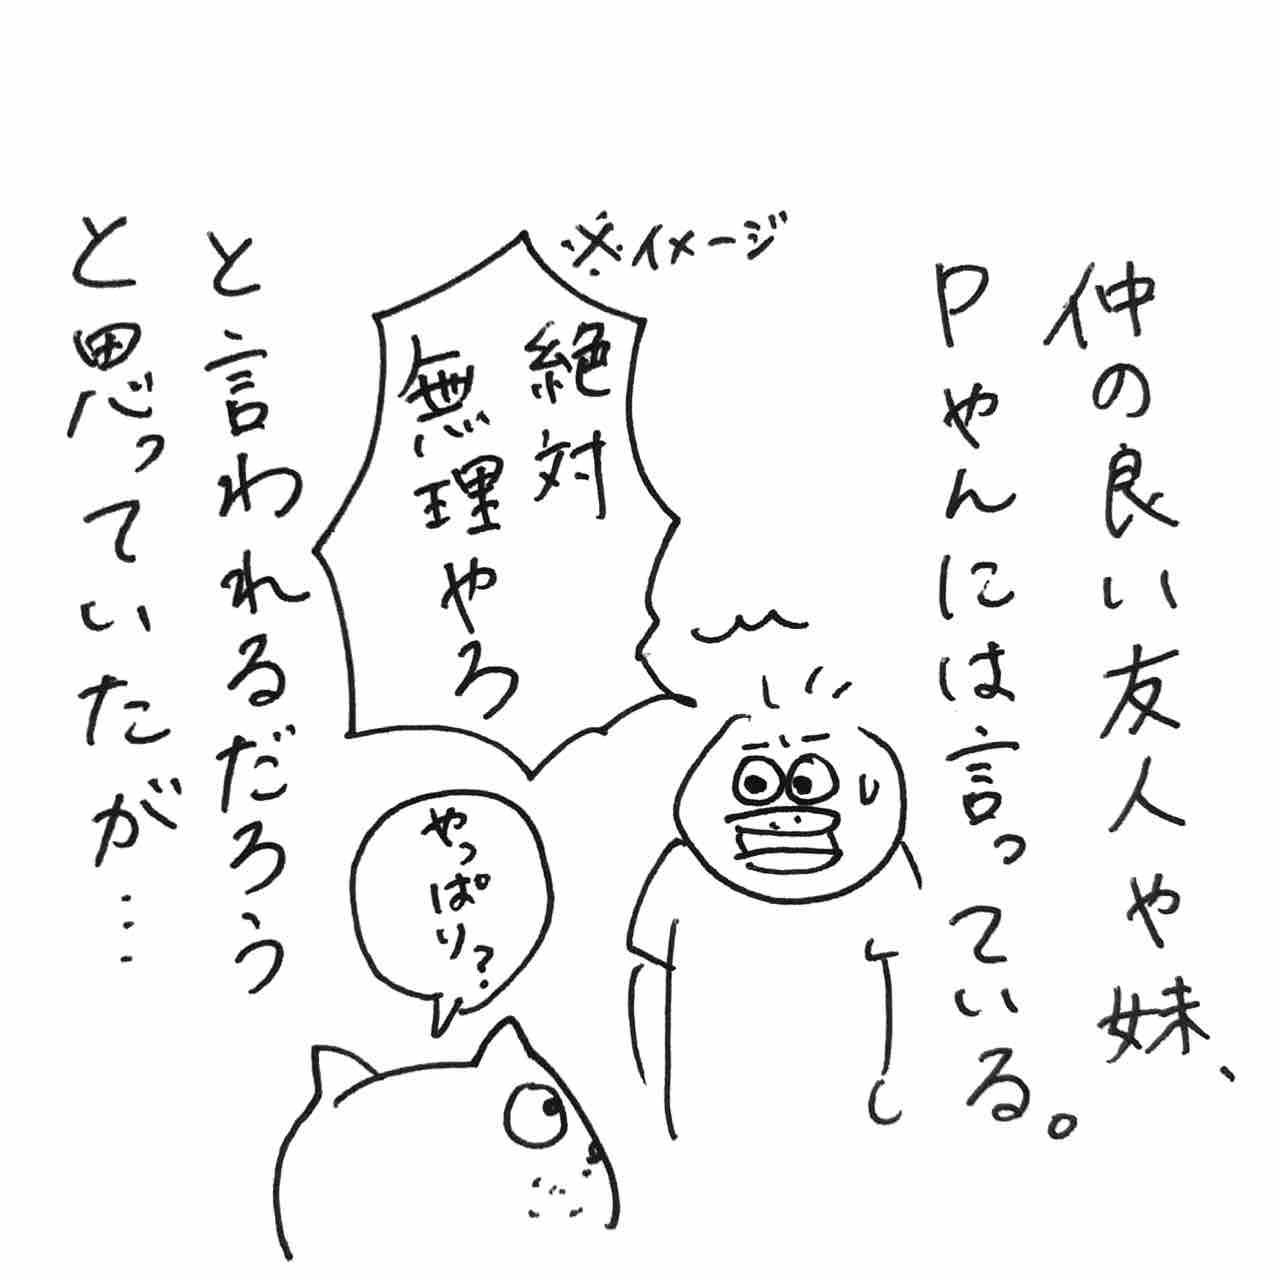 仲の良い友人や妹、
Pやんには言っている。
※イメージ
絶対
無理やろ
やっぱり?
と言われるだろう
と思っていたが…